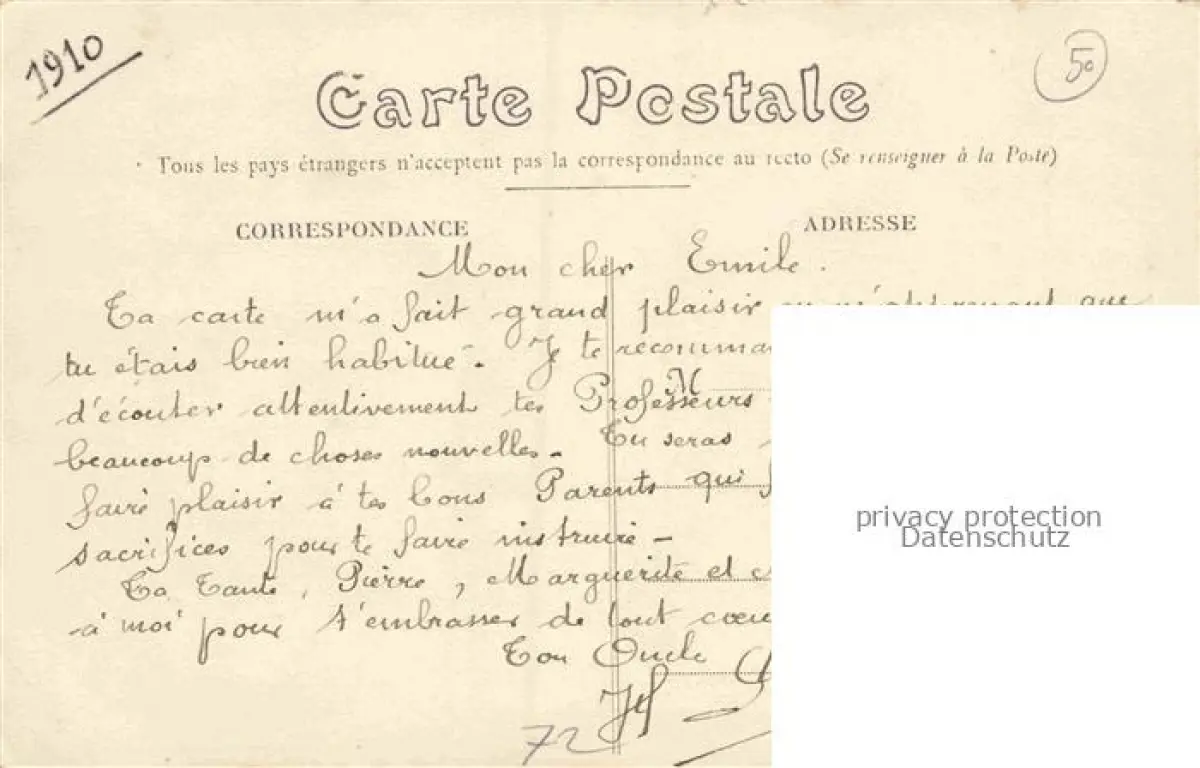 1910
50
Carte Postale
Tous les pays étrangers n'acceptent pas la correspondance au recto (Se renseigner à la Poste)
CORRESPONDANCE
ADRESSE
Mon cher Emile.
Ta carte m'a fait grand plaisir en m'apprenant que
tu étais bien habitué. Je te recomma
M
d'écouter attentivement tes Professeurs
beaucoup de choses nouvelles. Tu seras
faire plaisir à tes bons Parents qui
sacrifices pour te faire instruire -
Ta Tante, Pierre, Marguerite et
à moi pour t'embrasser de tout cœu
Ton Oncle
72
privacy protection
Datenschutz